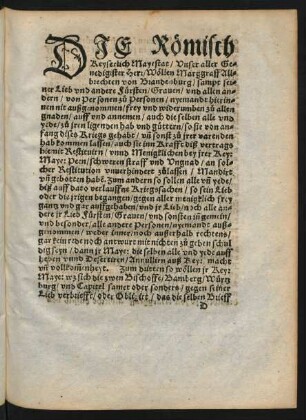 DIE Römisch
Keyserlich Mayestat / Unser aller Ge-
nedigister Herr / Wöllen Marggraff Al-
brechten von Brandenburg / sampt sei-
ner Lieb vnd andere Fürsten / Grauen / vnd allen an-
dern / von Personen zů Personen / nyemandt hierin-
nen nit außgenommen / frey vnd widerumben zů allen
gnaden / auff vnd annemen / auch die selben alle vnd
yede / zů jren ligenden hab vnd güttern / so sie von an-
fang dises Kriegs gehabt / vñ sonst zů jrer varenden
hab kommen lassen / auch sie inn Krafft diß vertrags
hiemit Restituiren / vnnd Menigklichen bey jrer Key:
Maye: Peen / schweren straff vnd Vngnad / an sol-
cher Restitution vnuerhindert zůlassen / Mandirt
vñ gebotten habẽ. Zum andern so sollen alle vñ yede /
diß auff dato verlauffne Kriegsachen / so sein Lieb
oder die jrigen begangen / gegen aller menigklich frey
gang vnd gar auffgehaben / vnd jr Lieb / auch alle an-
dere jr Lieb Fürsten / Grauen / vnd sonsten in gemein /
vnd besonder / alle andere Personen / nyemandt auß-
genommen / weder inner noch ausserhalb rechtens /
gar kein rede noch antwurt mit nichten zů geben schul
dig sein / dann jr Maye: die selben alle vnd yede auff
haben vnnd Deseriren / Annulliern auß Key: macht
vñ volkommenheyt. Zum dritten so wöllen jr Key:
Maye: wz sich die zwen Bischoffe / Bamberg / Würtz
burg / vnd Capitel samet oder sonders / gegen seiner
Lieb verbriefft / oder Obligirt / das die selben Brieff
D